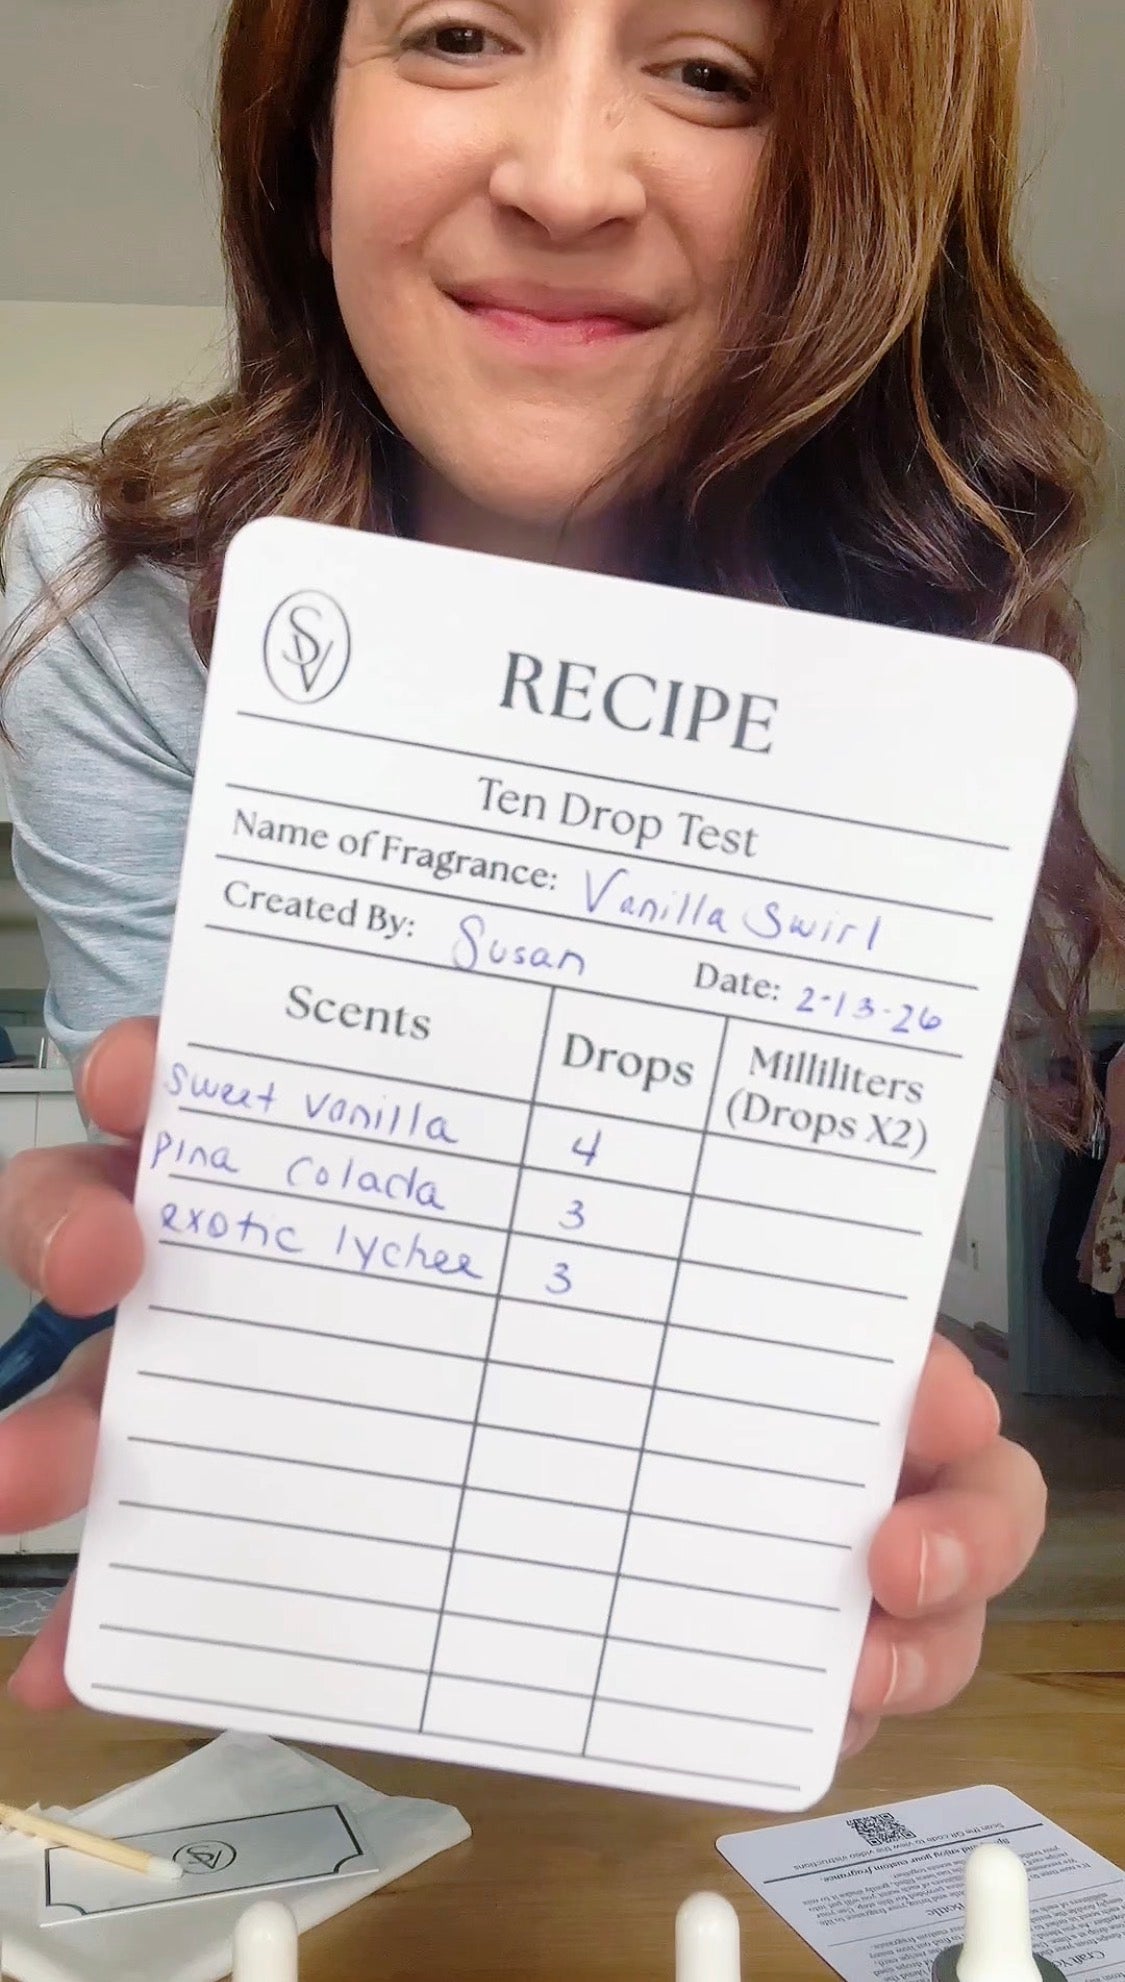 SV
RECIPE
Ten Drop Test
Name of Fragrance: Vanilla Swirl
Created By: Susan Date: 2-13-26
Scents Drops Milliliters (Drops X2)
sweet vanilla 4
pina colada 3
exotic lychee 3
SV
Scan the QR code to view the video instructions
enjoy your custom fragrance.
Bottle
Craft Yo